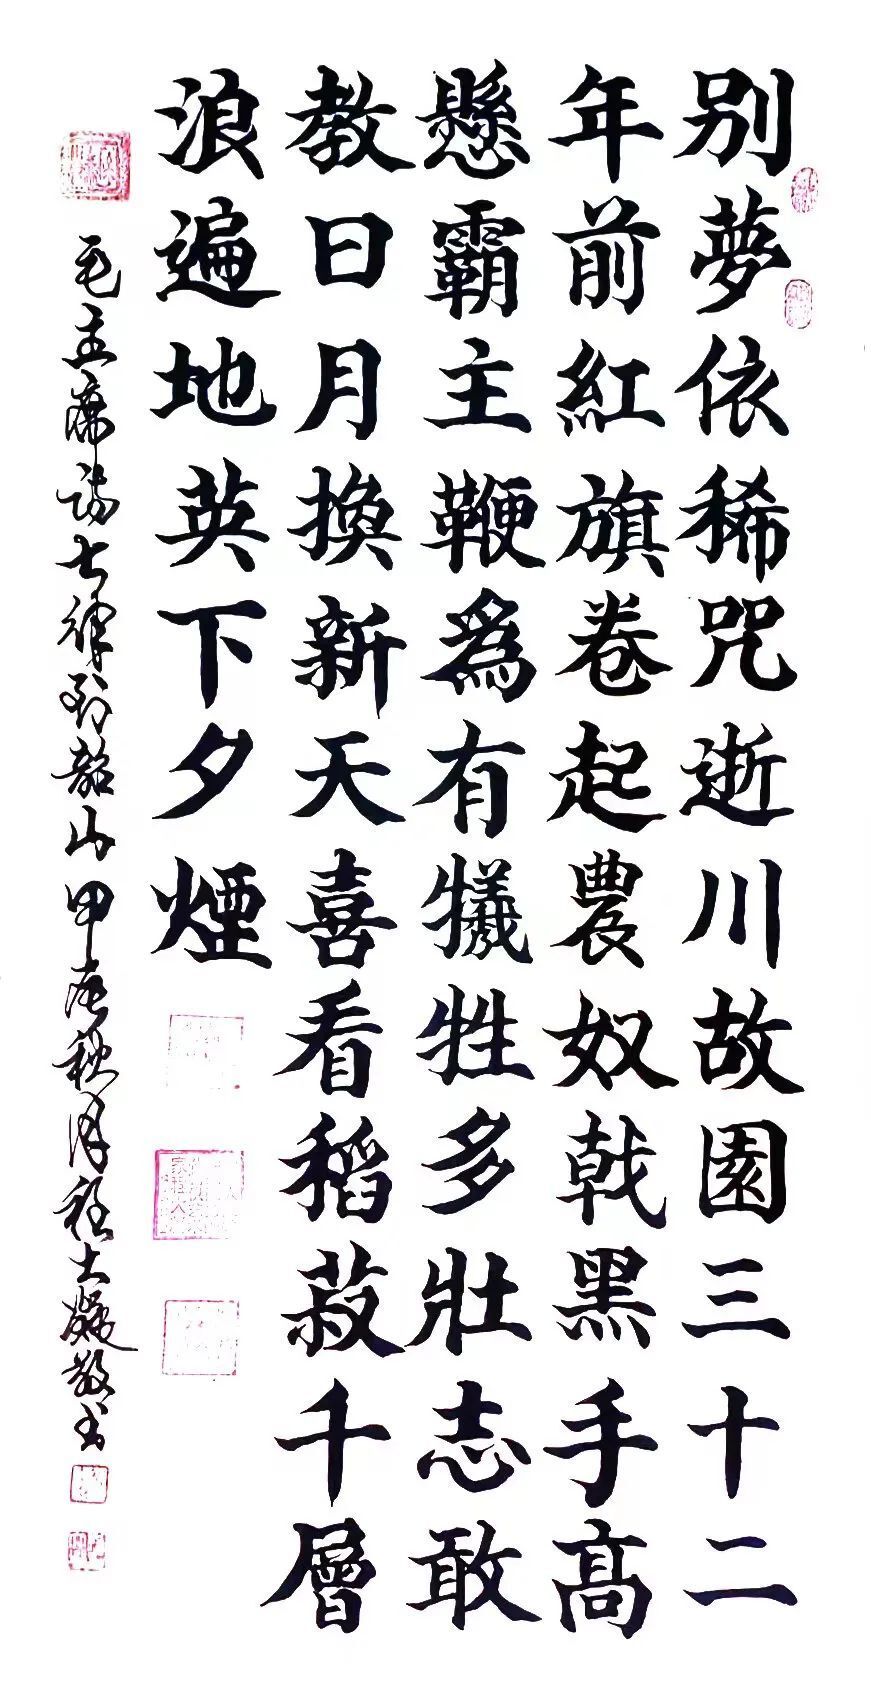 别夢依稀咒逝川故園三十二
年前紅旗卷起農奴戟黑手高
懸霸主鞭爲有犧牲多壯志敢
教日月換新天喜看稻菽千層
浪遍地英下夕煙
毛主席詩七律到韶山甲辰秋月程大敬书